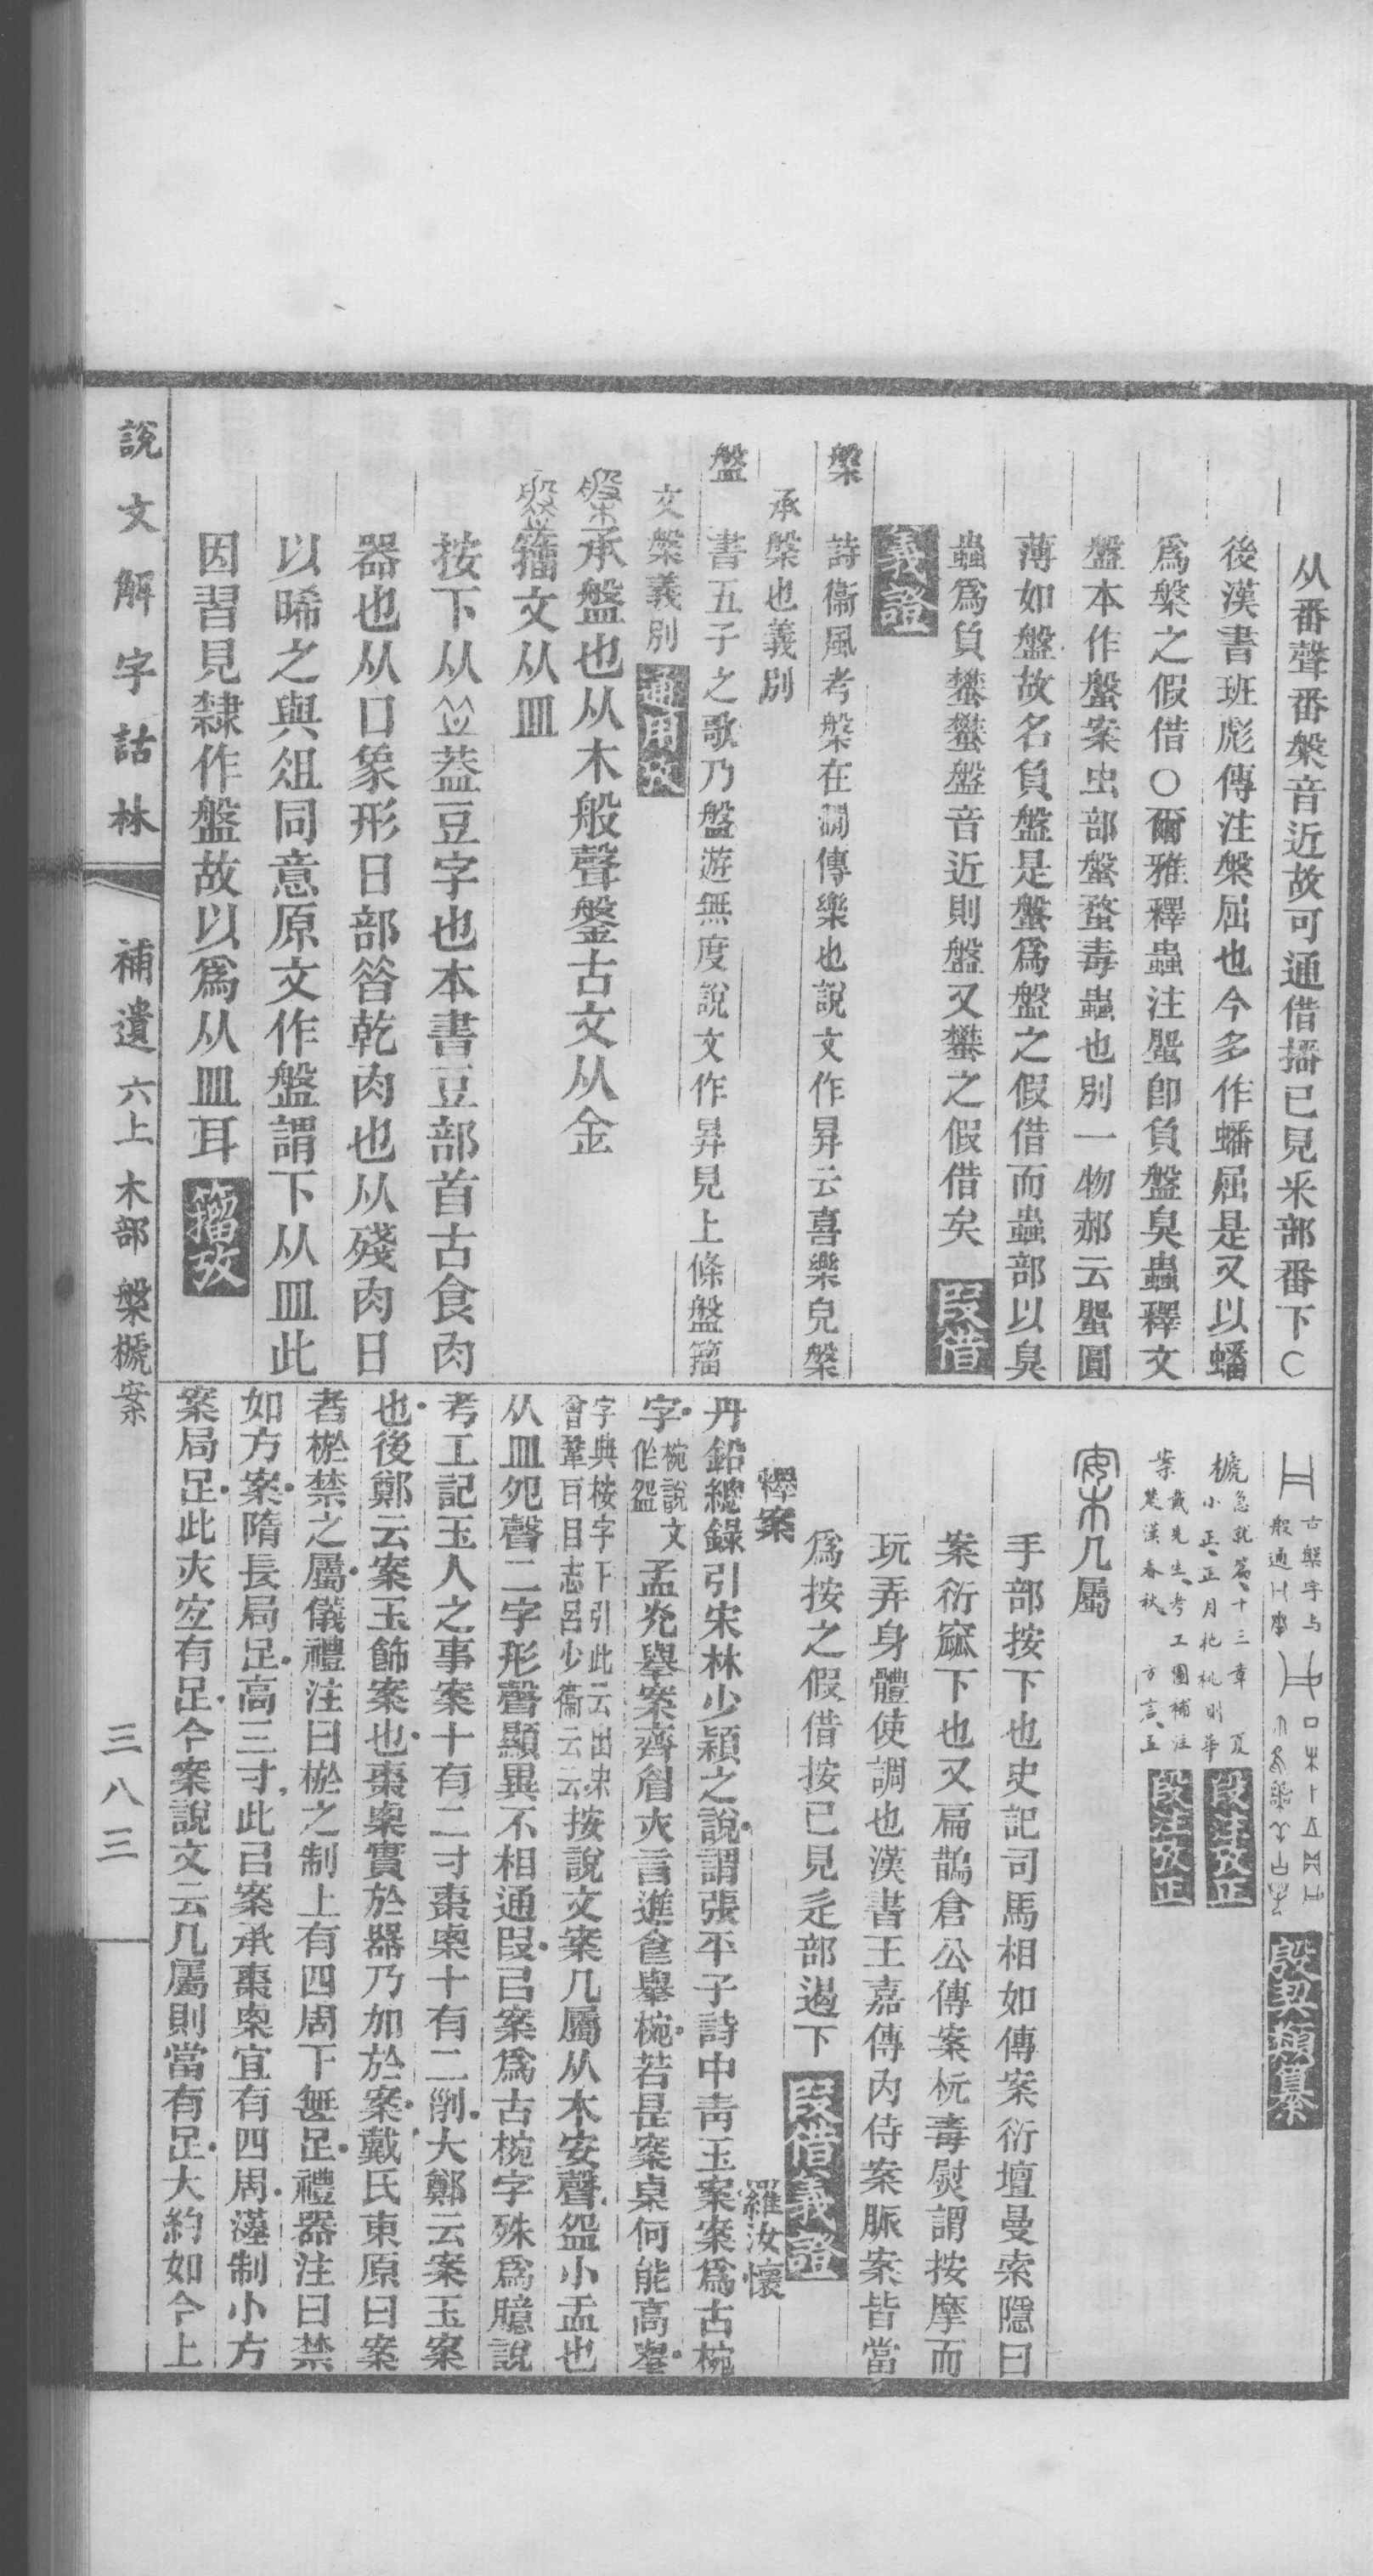 从番聲番槃音近故可通借播已見釆部番下○
後漢書班彪傳注槃屈也今多作蟠屈是又以蟠
爲槃之假借○爾雅釋蟲注蜰卽負盤臭蟲釋文
盤本作蟹案虫部蟹蝥毒蟲也別一物郝云蜰圓
薄如盤故名負盤是蟹爲盤之假借而蟲部以臭
蟲爲負蠜蠜盤音近則盤又蠜之假借矣 叚借
義證
槃 詩衞風考槃在澗傳樂也說文作昪云喜樂皃槃
承槃也義別
盤 書五子之歌乃盤遊無度說文作昪見上條盤籒
文槃義別 通用攷
槃承盤也从木般聲鎜古文从金
籒文从皿
按下从𥬔葢豆字也本書豆部首古食肉
器也从口象形日部㫺乾肉也从殘肉日
以晞之與俎同意原文作盤謂下从皿此
因習見隸作盤故以爲从皿耳 㩅攷
古槃字与
般通
殷契類纂
榹 急就篇、十三章 夏
小正、正月杝桃則華 段注攷正
案 戴先生、考工圖補注
楚漢春秋、 方言、五 段注攷正
案几屬
手部按下也史記司馬相如傳案衍壇曼索隱曰
案衍窳下也又扁鵲倉公傳案杬毒熨謂按摩而
玩弄身體使調也漢書王嘉傳內侍案脈案皆當
爲按之假借按已見辵部遏下 叚借義證
釋案 羅汝懷
丹鉛總錄引宋林少穎之說謂張平子詩中靑玉案案爲古椀
字椀說文作盌孟光舉案齊眉夾言進食舉椀若是案桌何能高舉
字典桉字下引此云出宋
會鞏百日志呂少衞云云按說文案几屬从木安聲盌小盂也
从皿夗聲二字形聲顯異不相通叚㠯案爲古椀字殊爲臆說
考工記玉人之事案十有二寸棗㮚十有二削大鄭云案玉案
也後鄭云案玉飾案也棗㮚實於器乃加於案戴氏東原曰案
者棜禁之屬儀禮注曰棜之制上有四周下無足禮器注曰禁
如方案隋長局足高三寸此㠯案承棗㮚宜有四周漢制小方
案局足此夾宐有足今案說文云几屬則當有足大約如今上
說文解字詁林 補遺 六上 木部 槃榹案 三八三